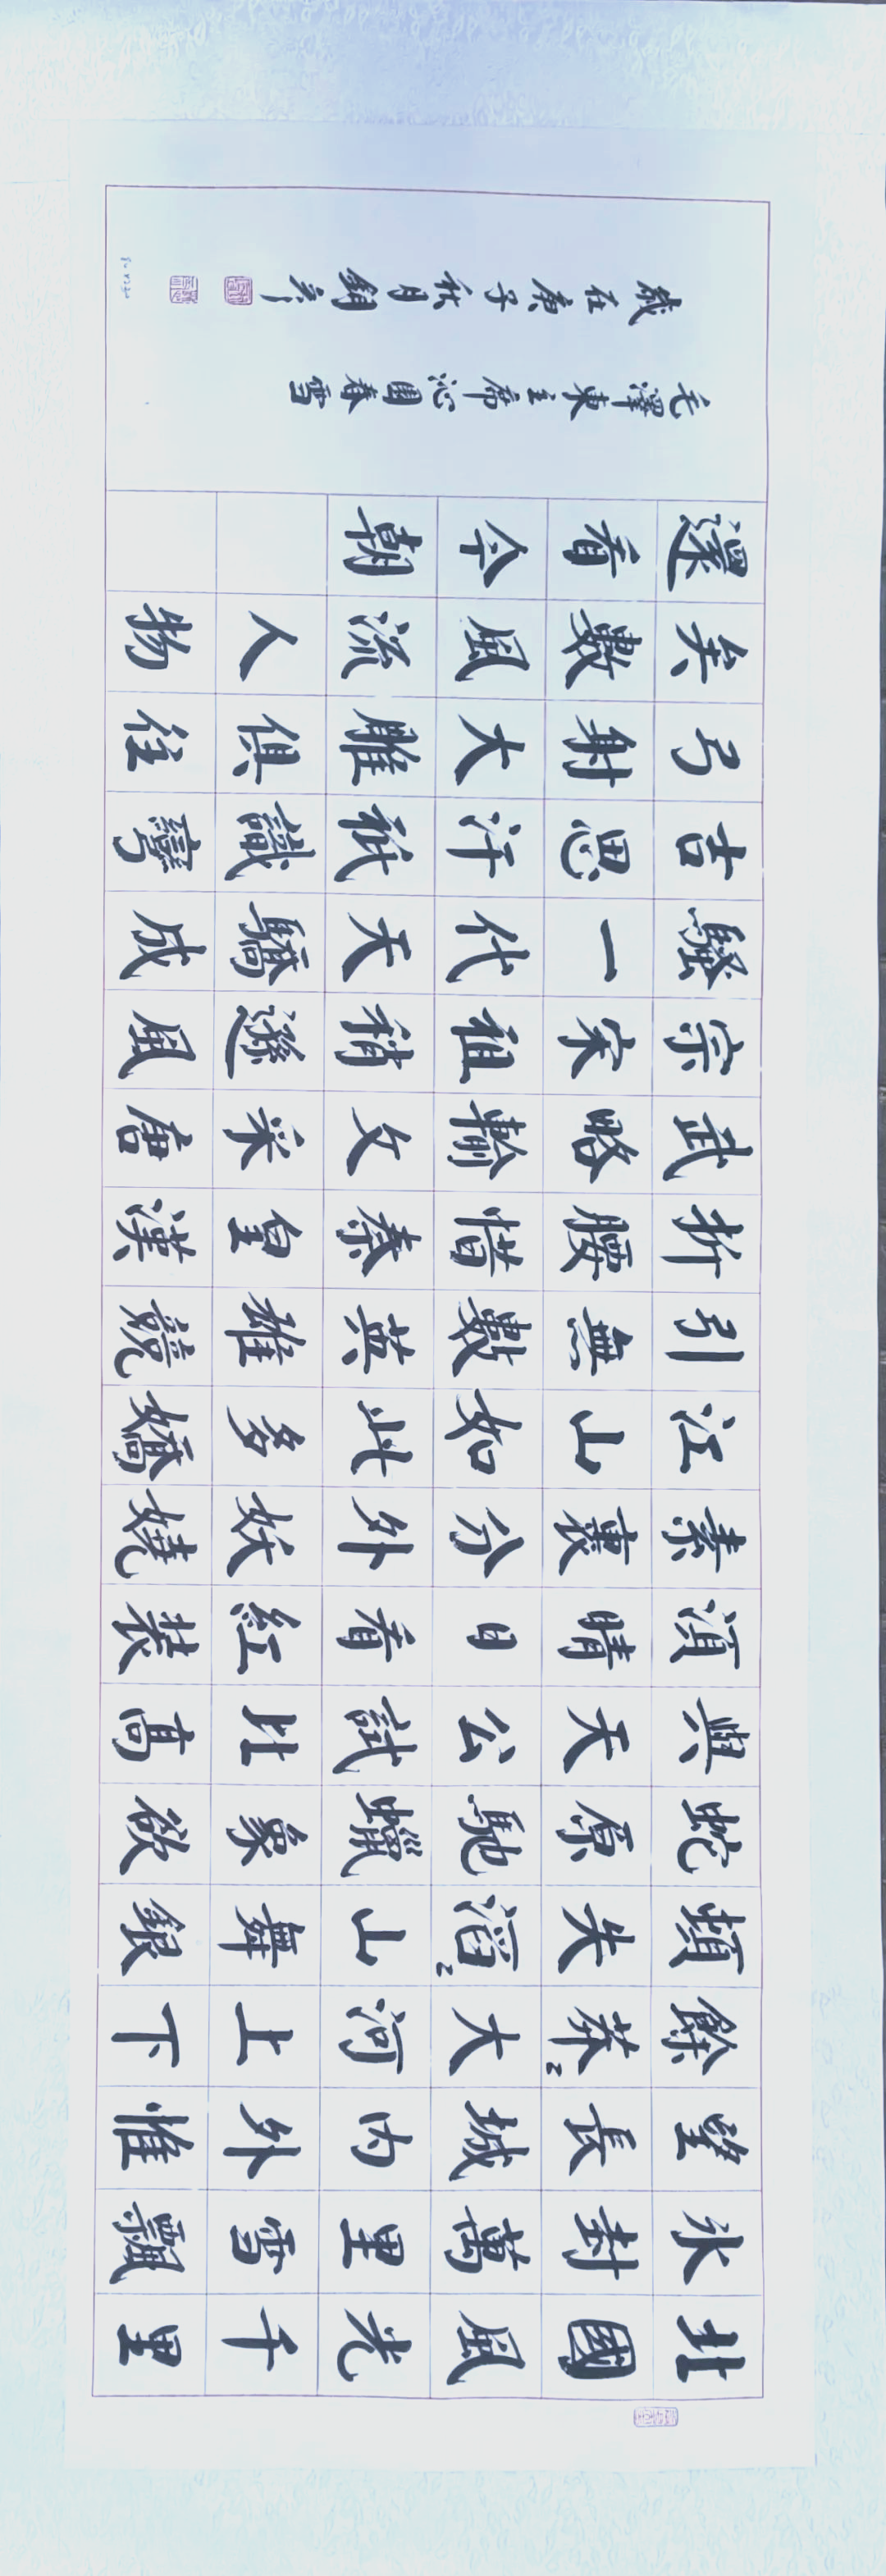 北國風光千里
冰封萬里雪飄
望長城内外惟
餘莽〻大河上下
頓失滔〻山舞銀
蛇原馳蠟象欲
與天公試比高
須晴日看紅裝
素裹分外妖嬈
江山如此多嬌
引無數英雄競
折腰惜秦皇漢
武略輸文采唐
宗宋祖稍遜風
騷一代天驕成
吉思汗衹識彎
弓射大雕俱往
矣數風流人物
還看今朝
毛澤東主席沁園春雪
歲在庚子秋月